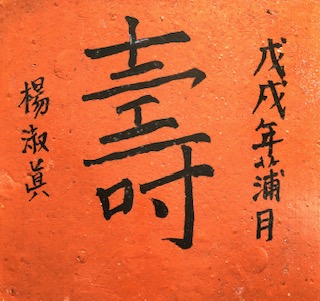 戊戌年花浦月
壽
楊淑眞